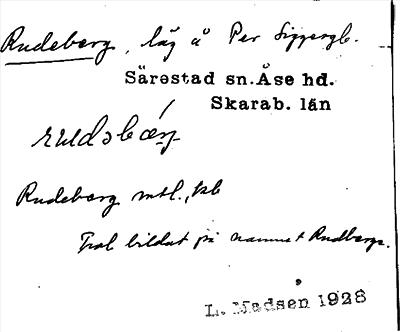 Rudeberg, låg å Per
Särestad sn. Åse hd.
Skarab. län
rudəbærj
Rudeberg mtl., kb
Trol bildat på namnet Rudberg.
L. Madsen 1928